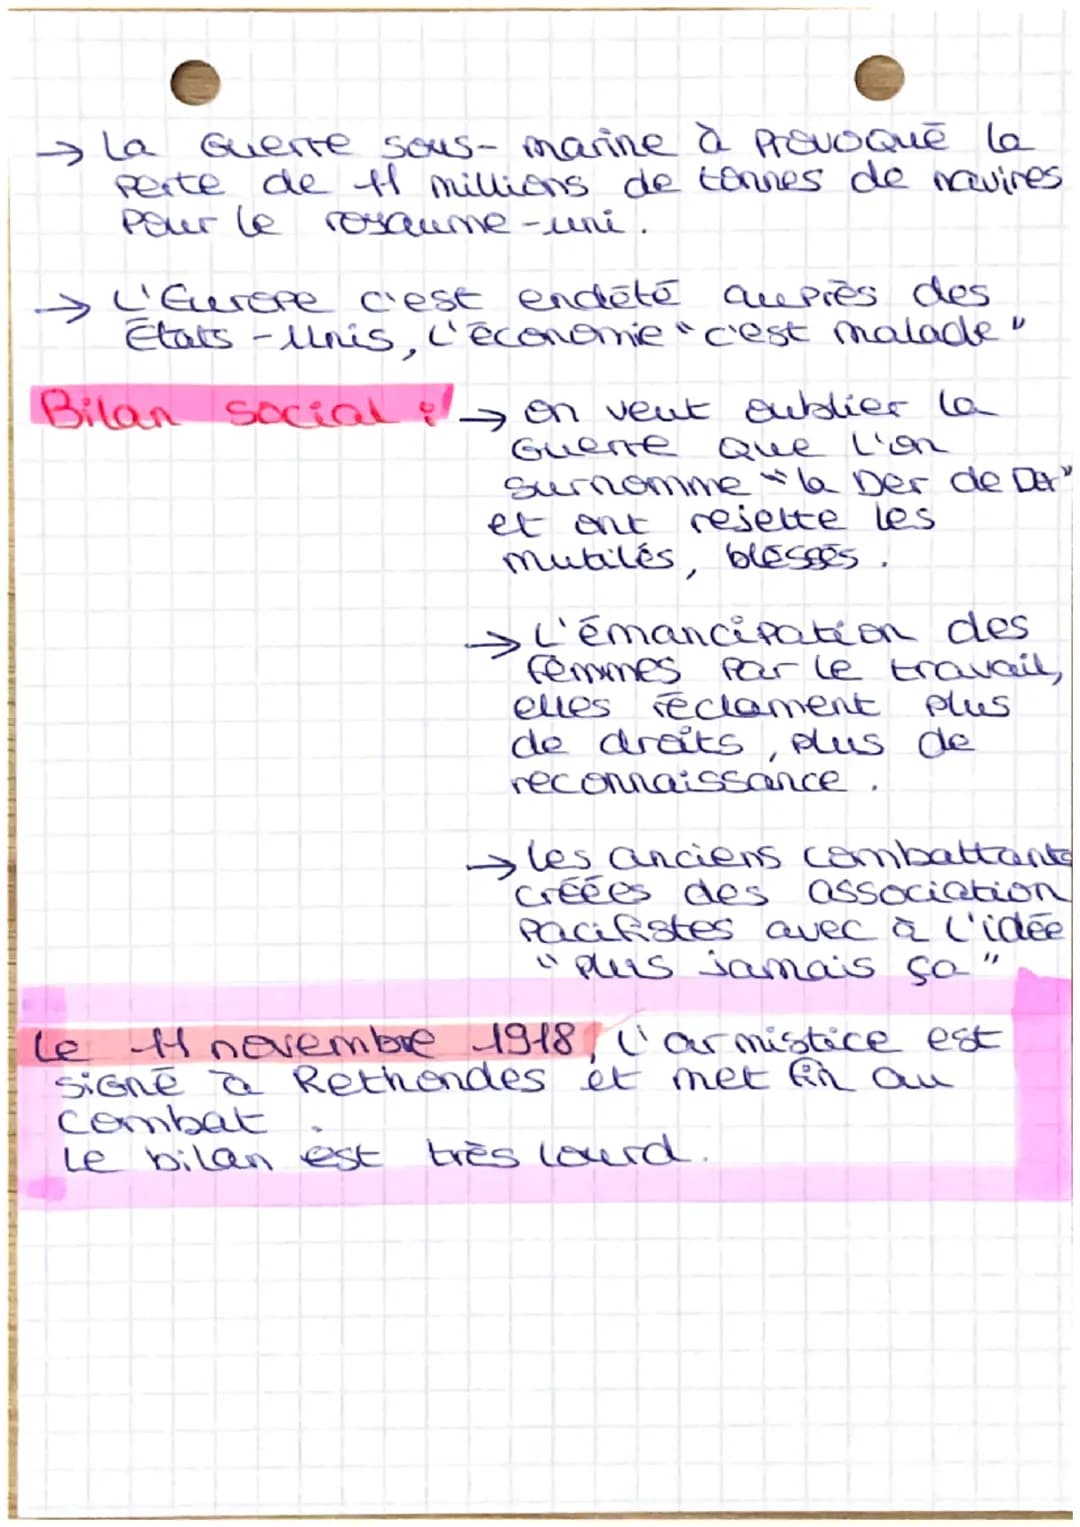 → La Guerre sous-marine à Provoqué la
perte de 11 millions de tonnes de navires
Pour le royaume-uni.
→ L'Europe c'est endété auprès des
États-Unis, L'économie "c'est malade"
Bilan social : → on veut oublier la
Guerre que l'on
surnomme "la Der de Der"
et ont rejette les
mutilés, blessés.
→ L'émancipation des
femmes par le travail,
elles réclament plus
de droits, plus de
reconnaissance.
→ les anciens combattants
créées des association
Pacifistes avec à l'idée
"plus jamais ça"
Le 11 novembre 1918, l'armistice est
signé à Rethondes et met fin au
combat.
Le bilan est très lourd.